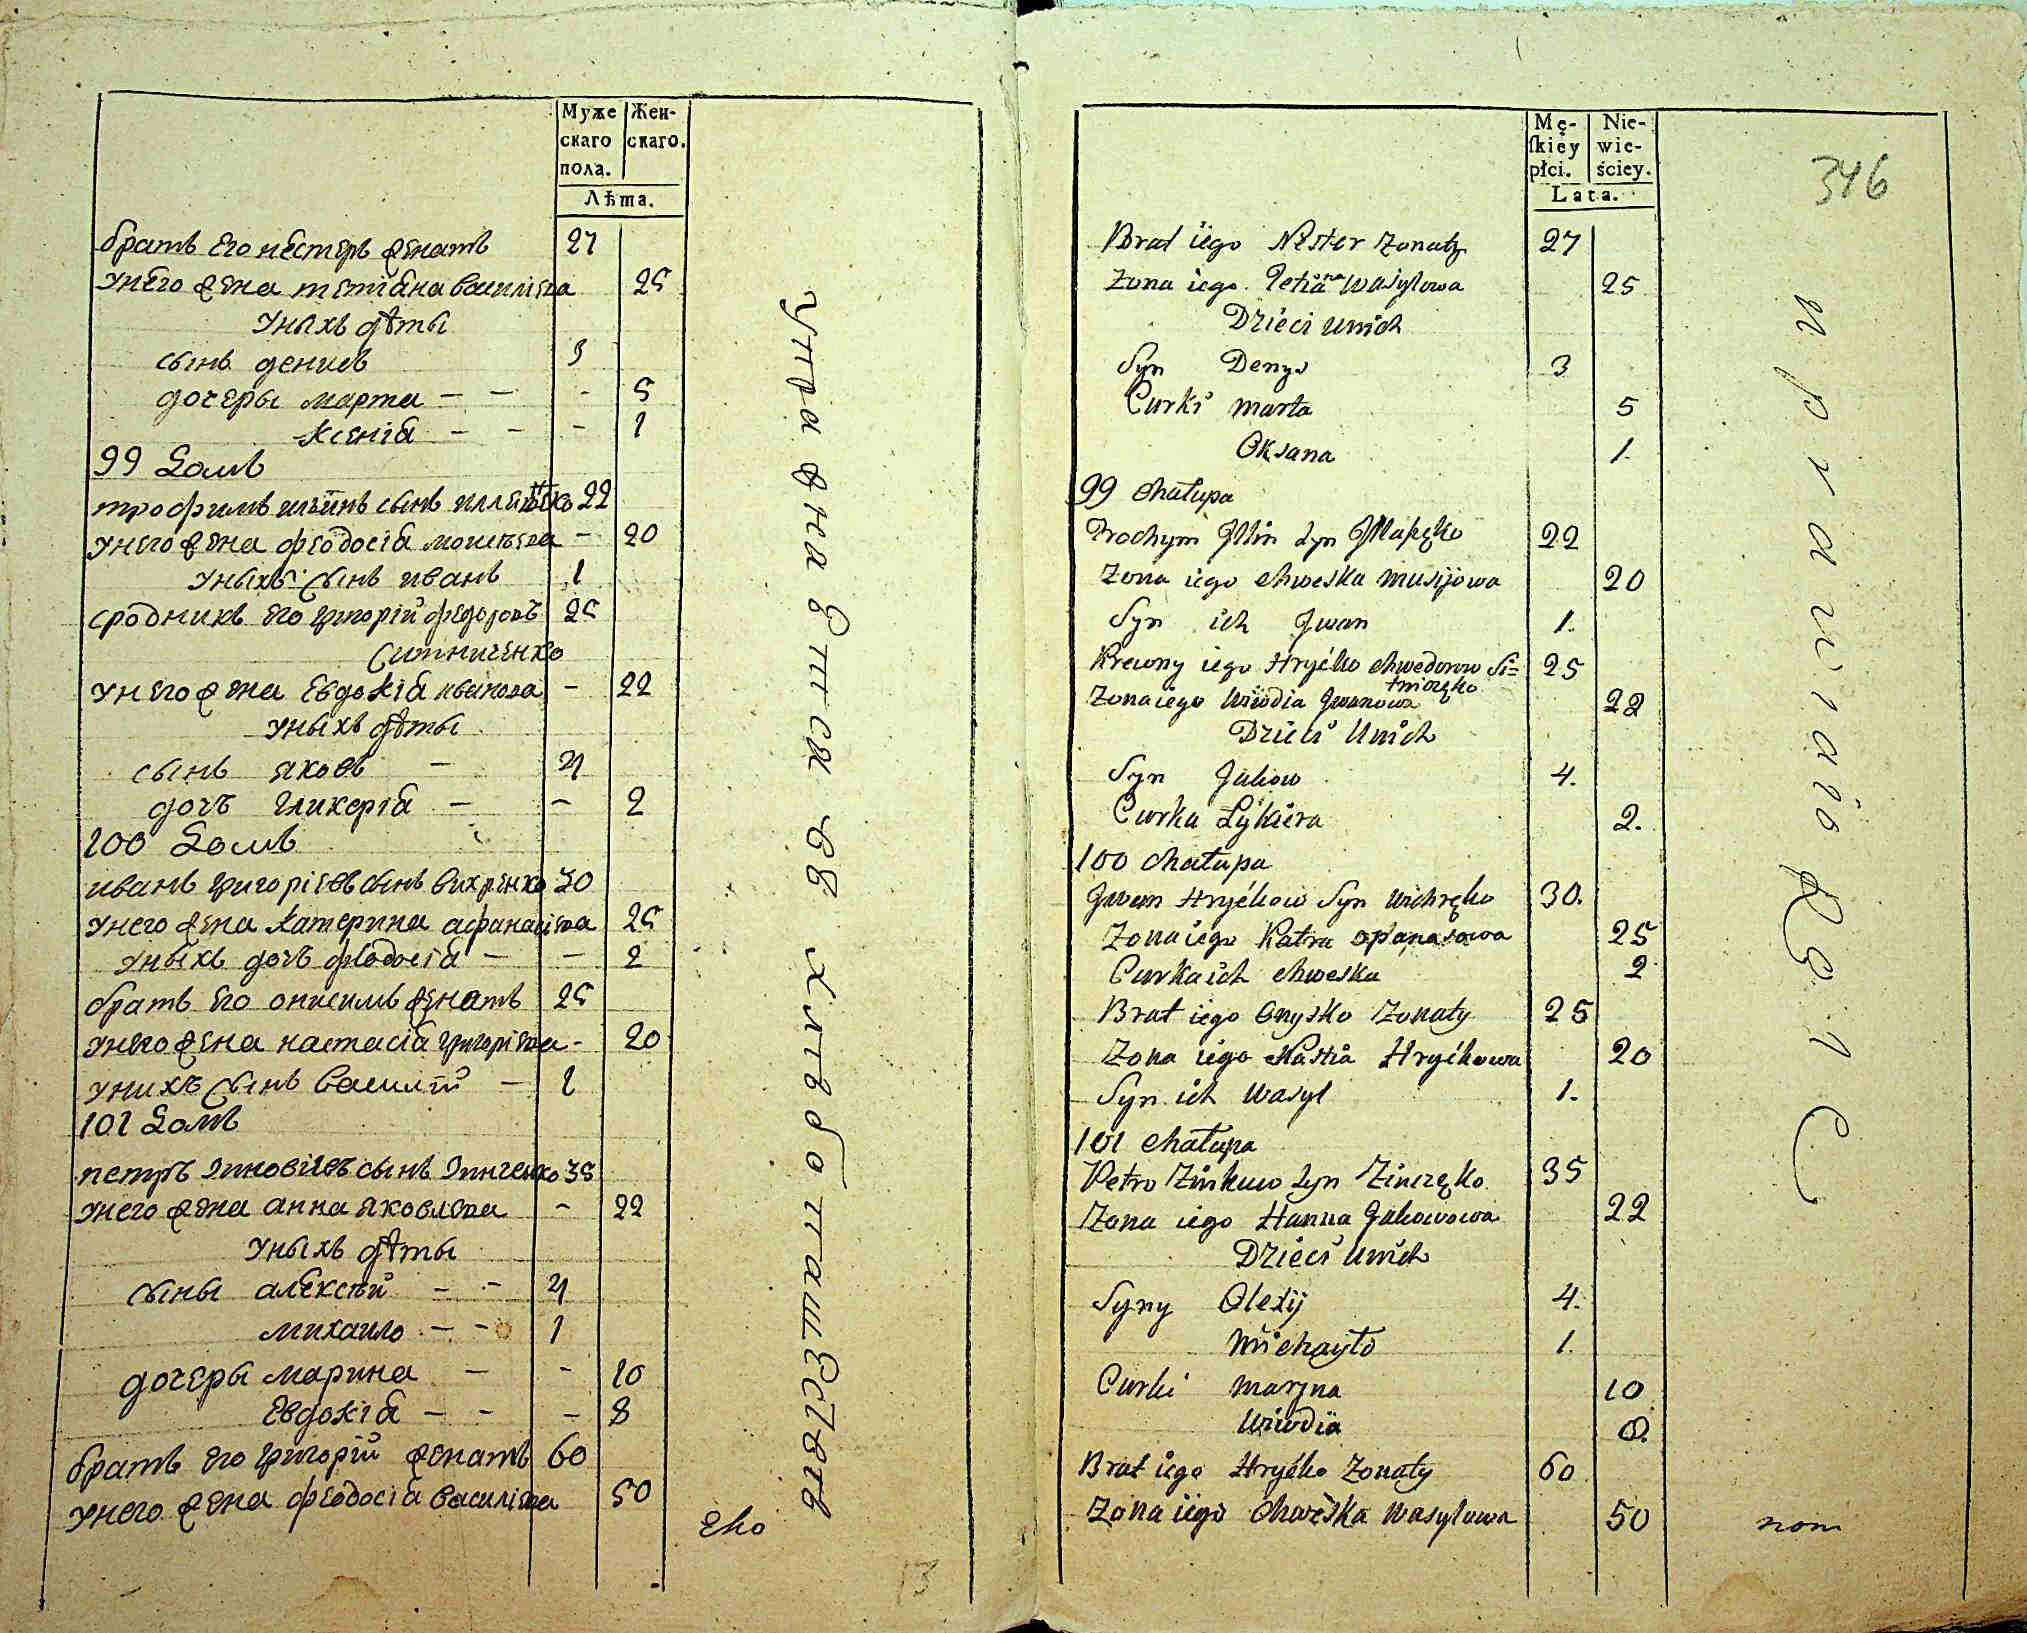 Муже
скаго
пола.
Жен-
скаго.
Лѣта.
братъ его нестеръ женатъ 27
унего жена татіана василіева 25
уныхъ дѣты
сынъ денисъ 3
дочеры марта - - - 5
Ксеніа - - - 1
99 Домъ
трофимъ ильинъ сынъ 22
унего жена феодосіа моисеева - 20
уныхъ сынъ иванъ 1
сродникъ его григорій федоровъ 25
Ситниченко
унего жена Евдокіа иванова - 22
уныхъ дѣты
сынъ яковъ - 4
дочъ гликеріа - - 2
100 Домъ
иванъ григоріевъ сынъ вихренко 30
унего жена катерина афанасіева 25
уныхъ дочъ феодосіа - - 2
братъ его онисимъ женатъ 25
унего жена настасіа григоріева - 20
унихъ сынъ василій - 1
101 Домъ
петръ зиновіевъ сынъ Зинченко 35
унего жена анна яковлева - 22
уныхъ дѣты
сыны алексѣй - - 4
михаило - - 1
дочеры марина - - 10
Евдокіа - - - 8
братъ его григорій женатъ 60
унего жена феодосіа василіева 50
13
Mę-
ſkiey
płci.
Nie-
wie-
ściey.
Lata.
346
Brat iego Nester Zonaty 27
Zona iego Tetiana Wasylowa 25
Dzieci Unich
Syn Denys 3
Curki Marta 5
Oksana 1.
99 Chałupa
Trochym Illin Syn 22
Zona iego Chweska Musijowa 20
Syn ich Jwan 1.
Krewny iego Hryćko Chwedorow Si= 25
tniczęko
Zona iego Wiwdia Jwanowa 22
Dzieci Unich
Syn Jakow 4.
Curka Łykiera 2.
100 Chałupa
Jwan Hryćkow Syn Wichręko 30.
Zona iego Katra Opanasowa 25
Curka ich Chweska 2
Brat iego Onysko Zonaty 25
Zona iego Nastia Hryćkowa 20
Syn ich Wasyl 1.
101 Chałupa
Petro Zinkuw Syn Zinczęko 35
Zona iego Hanna Jakowowa 22
Dzieci Unich
Syny Olexij 4.
Michayło 1.
Curki Maryna 10
Wiwdia 8.
Brat iego Hryćko Zonaty 60
Zona iego Chweska Wasylowa 50